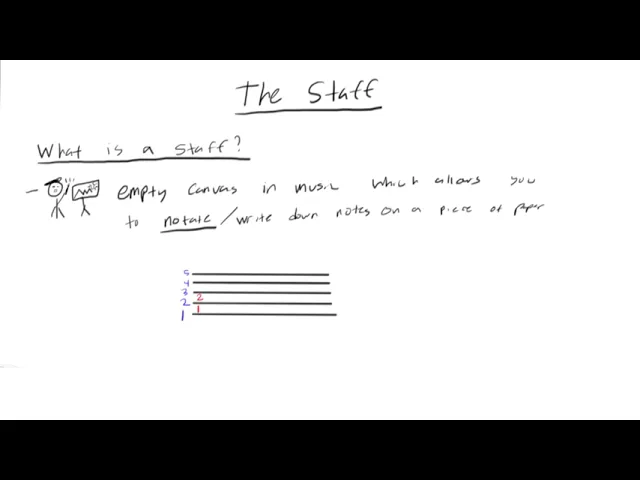 The Staff
What is a staff?
- empty canvas in music which allows you
to notate/write down notes on a piece of paper
5
4
3
2 2
1 1